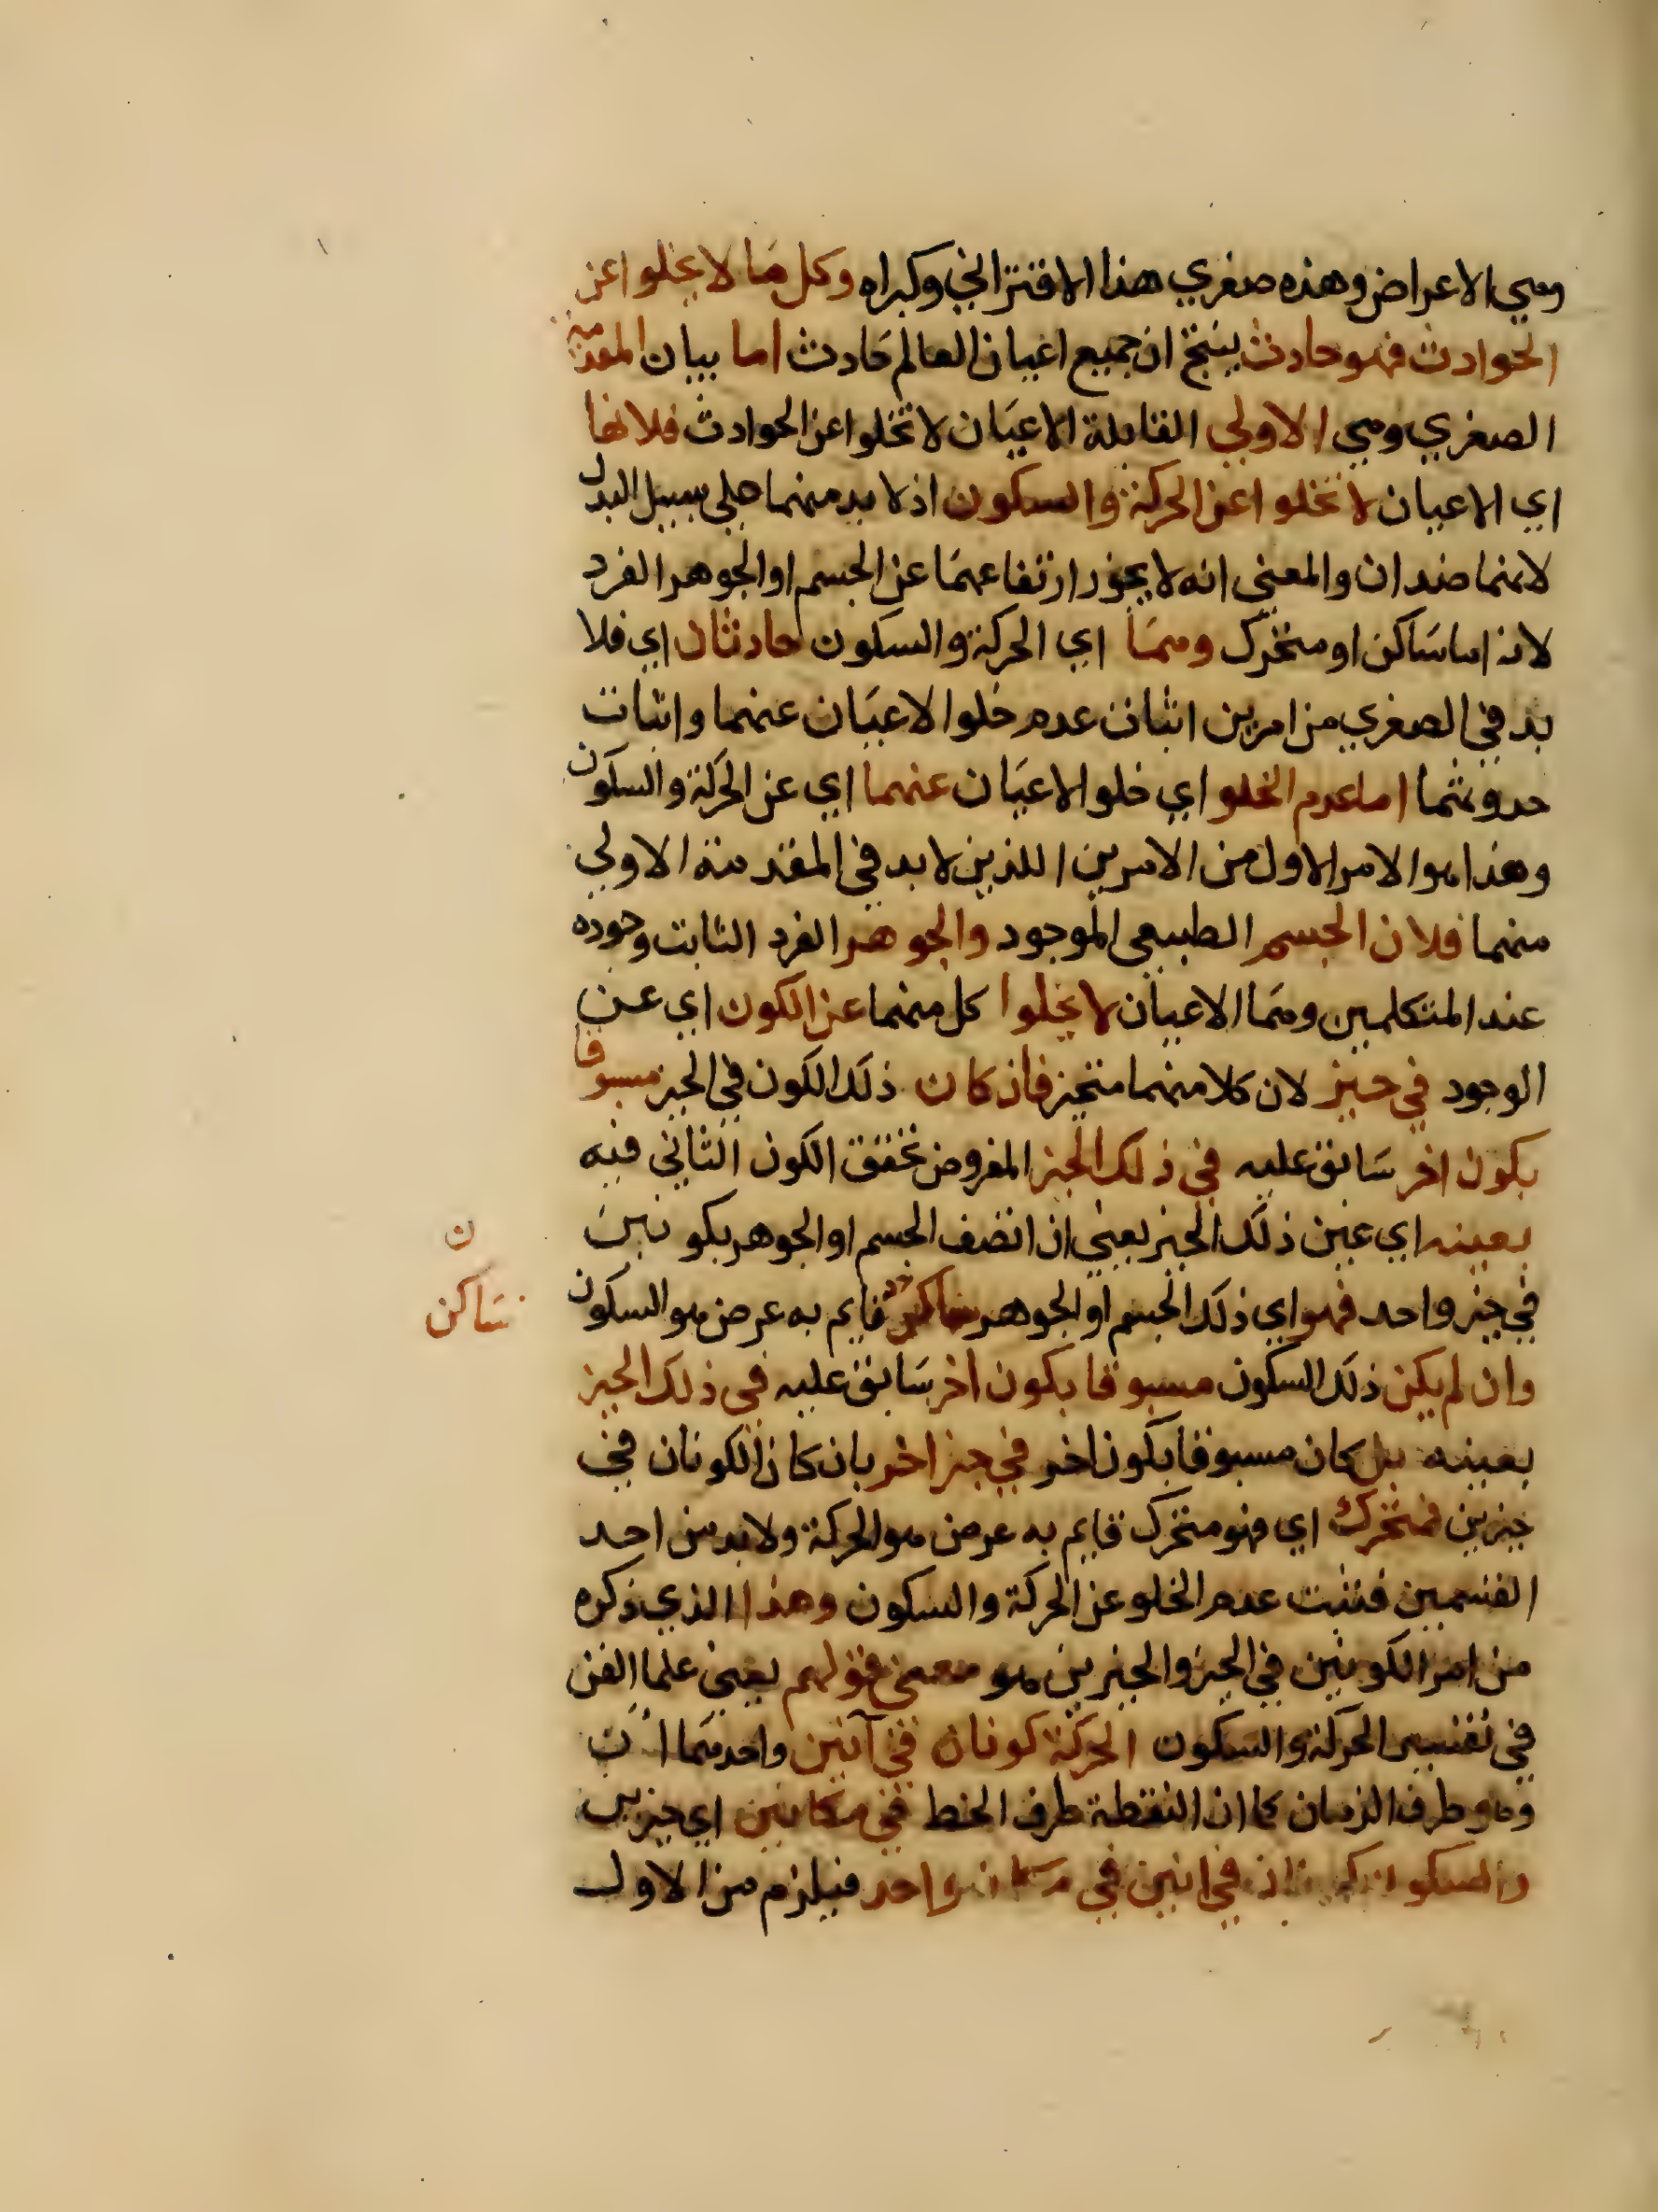 وهي الاعراض وهذه صغري هذا الاقتراني وكبراه وكل ما لا يخلوا عن
الحوادث فهو حادث ينتج ان جميع اعيان العالم حادث اما بيان المقدمة
الصغري وهي الاولي القايلة الاعيان لا تخلوا عن الحوادث فلانها
اي الاعيان لا تخلوا عن الحركة والسكون اذ لا بد منهما علي سبيل البدل
لانهما ضدان والمعني انه لا يجوز ارتفاعهما عن الجسم او الجوهر الفرد
لانه اما ساكن او متحرك وهما اي الحركة والسكون حادثان اي فلا
بد في الصغري من امرين اثبات عدم خلو الاعيان عنهما واثبات
حدوثهما اما عدم الخلو اي خلو الاعيان عنهما اي عن الحركة والسكون
وهذا هو الامر الاول من الامرين اللذين لا بد في المقدمة الاولي
منهما فلان الجسم الطبيعي الموجود والجوهر الفرد الثابت وجوده
عند المتكلمين وهما الاعيان لا يخلوا كل منهما عن الكون اي عن
الوجود في حيز لان كلا منهما متحيز فان كان ذلك الكون في الحيز مسبوقا
بكون اخر سابق عليه في ذلك الحيز المفروض تحقق الكون الثاني فيه
بعينه اي عين ذلك الحيز يعني ان اتصف الجسم او الجوهر بكونين
في حيز واحد فهو اي ذلك الجسم او الجوهر ساكن قايم به عرض هو السكون
ن
ساكن
وان لم يكن ذلك السكون مسبوقا بكون اخر سابق عليه في ذلك الحيز
بعينه بل كان مسبوقا بكون اخر في حيز اخر بان كان الكونان في
حيزين فمتحرك اي فهو متحرك قايم به عرض هو الحركة ولا بد من احد
القسمين فثبت عدم الخلو عن الحركة والسكون وهذا الذي ذكره
من امر الكونين في الحيز والحيزين هو معني قولهم يعني علما الفن
في تفسير الحركة والسكون الحركة كونان في آنين واحدهما ان
وهو طرف الزمان كما ان النقطة طرف الخط في مكانين اي حيزين
والسكون كونان في انين في مكان واحد فيلزم من الاول